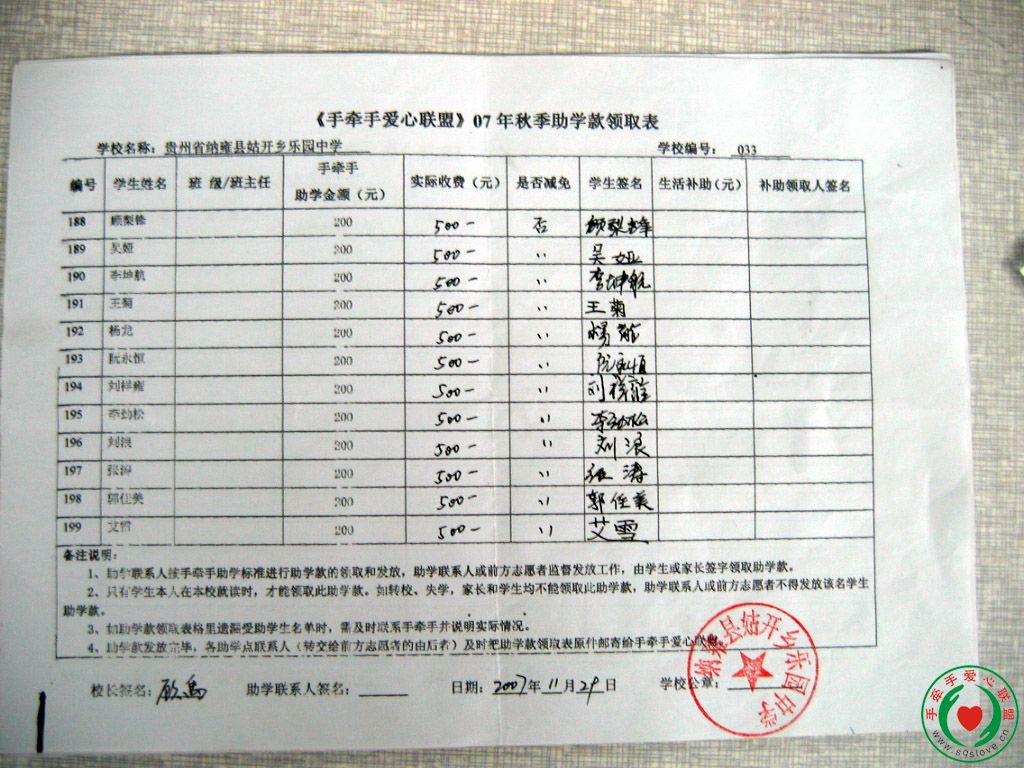 《手牵手爱心联盟》07年秋季助学款领取表
学校名称：贵州省纳雍县姑开乡乐园中学 学校编号：033
编号 学生姓名 班 级/班主任 手牵手助学金额（元） 实际收费（元） 是否减免 学生签名 生活补助（元） 补助领取人签名
188 顾梨锋 200 500- 否 顾梨锋
189 吴娅 200 500- 〃 吴娅
190 李坤航 200 500- 〃 李坤航
191 王菊 200 500- 〃 王菊
192 杨龙 200 500- 〃 杨龙
193 阮永恒 200 500- 〃 阮永恒
194 刘祥雍 200 500- 〃 刘祥雍
195 李劲松 200 500- 〃 李劲松
196 刘浪 200 500- 〃 刘浪
197 张涛 200 500- 〃 张涛
198 郭佳美 200 500- 〃 郭佳美
199 艾雪 200 500- 〃 艾雪
备注说明：
1、助学联系人按手牵手助学标准进行助学款的领取和发放，助学联系人或前方志愿者监督发放工作，由学生或家长签字领取助学款。
2、只有学生本人在本校就读时，才能领取此助学款。如转校、失学，家长和学生均不能领取此助学款，助学联系人或前方志愿者不得发放该名学生
助学款。
3、如助学款领取表格里遗漏受助学生名单时，需及时联系手牵手并说明实际情况。
4、助学款发放完毕，各助学点联系人（转交给前方志愿者的由后者）及时把助学款领取表原件邮寄给手牵手爱心联盟。
校长签名： 助学联系人签名： 日期：2007年11月29日 学校公章：
纳雍县姑开乡乐园中学
手牵手爱心联盟
www.sqslove.cn